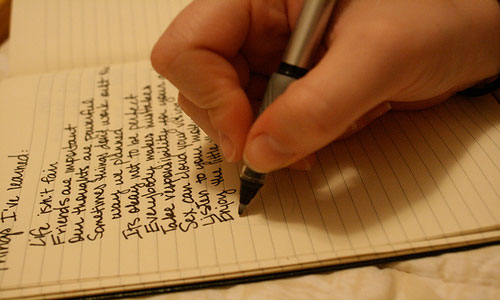 Things I've learned:
Life isn't fair
Friends are important
Our thoughts are powerful
Sometimes things don't work out the
way we planned
It's okay not to be perfect
Everybody makes mistakes
Take responsibility for your
Sex can cloud your
Listen to your
Enjoy the little